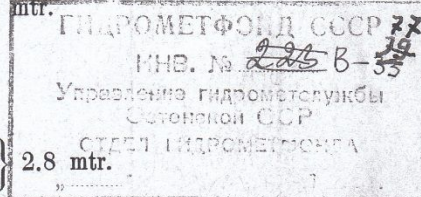 mtr.
ГИДРОМЕТФОНД СССР
ИНВ. № 223 В-
77
Управление гидрометслужбы
Эстонской ССР
ОТДЕЛ ГИДРОМЕТФОНДА
2.8 mtr.
„